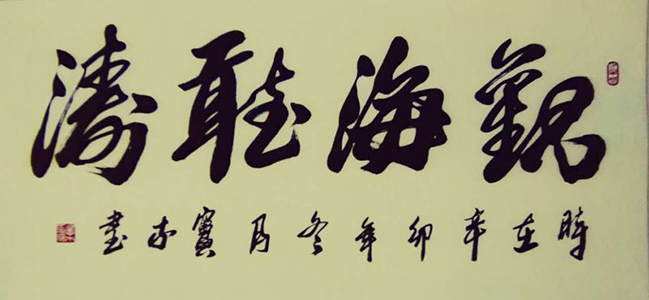 觀海聽濤
時在辛卯年冬月寶書